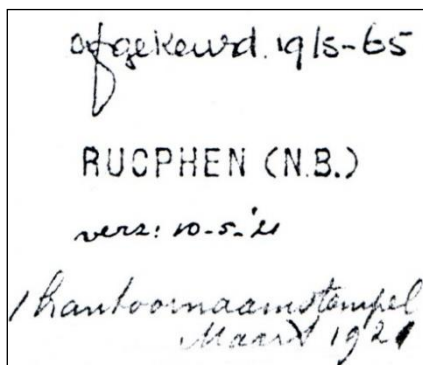 afgekeurd. 19/5-65
RUCPHEN (N.B.)
verz: 10-5-'21
1 kantoornaamstempel
Maart 1921